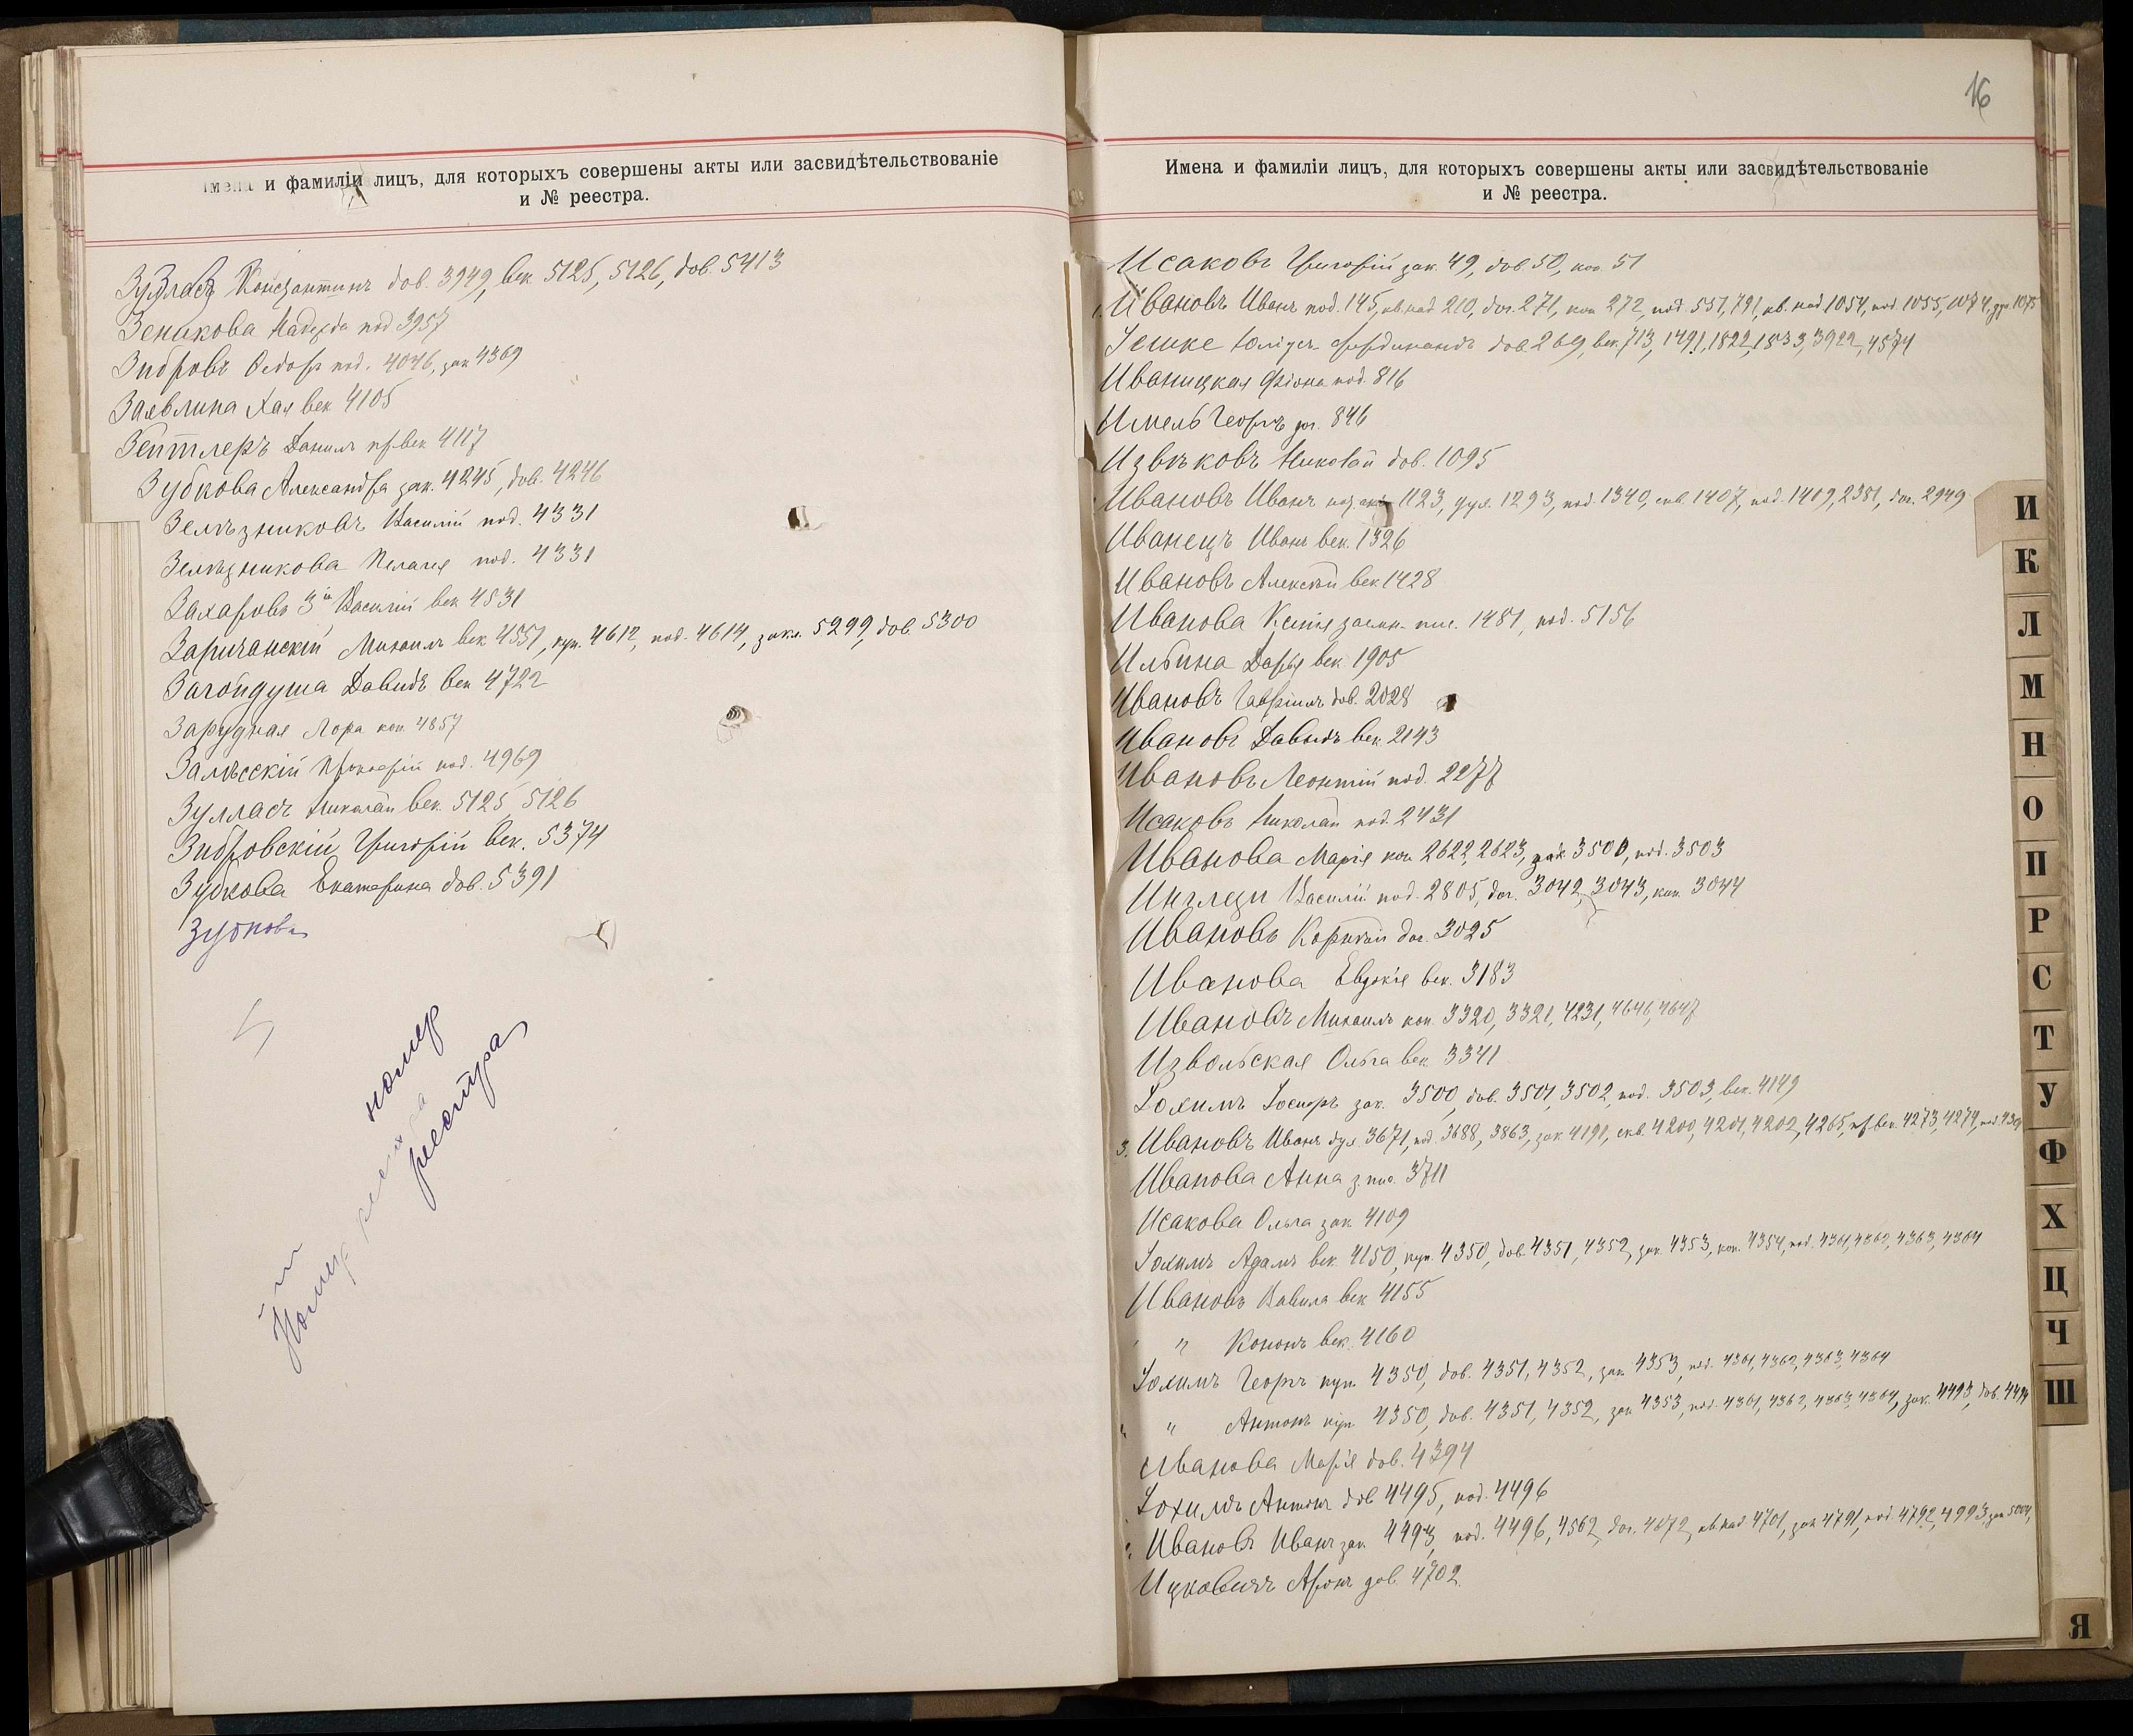 и фамиліи лицъ, для которыхъ совершены акты или засвидѣтельствованіе
и № реестра.
Зулласъ Константинъ дов. 3949, век 5125, 5126, дов. 5413
Зеникова Надежда под 3957
Зибровъ Ѳедоръ под. 4046, зак 4369
Заявлина Хая век 4105
Зептлеръ Данилъ пр.век 4117
Зубкова Александра зак. 4245, дов. 4246
Зелѣзниковъ Василій под. 4331
Зелѣзникова Пелагея под. 4331
Захаровъ 3й Василій век 4531
Заричанскій Михаилъ век 4551, куп. 4612, под. 4614, закл. 5299, дов. 5300
Загойдуша Давидъ век 4722
Зарудная Лора коп. 4857
Залѣсскій Прокофій под. 4969
Зулласъ Николай век. 5125, 5126
Зибровскій Григорій век. 5374
Зубкова Екатерина дов. 5391
Зубкова
номер
реестра
Номер
16
Имена и фамиліи лицъ, для которыхъ совершены акты или засвидѣтельствованіе
и № реестра.
Исаковъ Григорій зак. 49, дов. 50, коп. 51
Ивановъ Иванъ под. 145, 210, дог. 271, коп 272, под. 551, 791, 1054, под. 1055, 1074, 1075
Іешке Юліусъ Фердинандъ дов. 269, век. 713, 1491, 1822, 1833, 3922, 4574
Иваницкая под. 816
Имель Георгъ дог. 846
Извѣковъ Николай дов. 1095
Ивановъ Иванъ 1123, 1293, под. 1340, 1407, под. 1419, 2381, дог. 2949
Иванецъ Иванъ век. 1326
Ивановъ Алексѣй век 1428
Иванова Ксенія 1481, под. 5156
Ильина Дарья век. 1905
Ивановъ Гавріилъ дов. 2028
Ивановъ Давыдъ век. 2143
Ивановъ Леонтій под. 2277
Исаковъ Николай под. 2431
Иванова Марія коп 2622, 2623, зак. 3500, под. 3503
Василій под. 2805, дог. 3042, 3043, коп. 3044
Ивановъ Корнѣй дог. 3025
Иванова Евдокія век. 3183
Ивановъ Михаилъ коп. 3320, 3321, 4231, 4646, 4647
Извольская Ольга век 3341
Іохимъ зак. 3500, дов. 3501, 3502, под. 3503, век. 4149
3. Ивановъ Иванъ 3671, под. 3688, 3863, зак. 4191, 4200, 4201, 4202, 4265, пр.век. 4273, 4274, под.
Иванова Анна 3711
Исакова Ольга зак 4109
Іохимъ Адамъ век. 4150, куп. 4350, дов. 4351, 4352, зак. 4353, коп. 4354, под. 4361, 4362, 4363, 4364
Ивановъ Вавила век 4155
" Кононъ век. 4160
Іохимъ Георгъ куп. 4350, дов. 4351, 4352, зак. 4353, под. 4361, 4362, 4363, 4364
" Антонъ куп. 4350, дов. 4351, 4352, зак 4353, под. 4361, 4362, 4363, 4364, зак. 4493, дов. 4494
Иванова Марія дов. 4394
Іохимъ Антонъ дов 4495, под. 4496
Ивановъ Иванъ зак. 4493, под. 4496, 4562, дог. 4672, 4701, зак 4791, под. 4792, 4993, зак
Ицковичъ Аронъ дов 4702
И
К
Л
М
Н
О
П
Р
С
Т
У
Ф
Х
Ц
Ч
Ш
Я